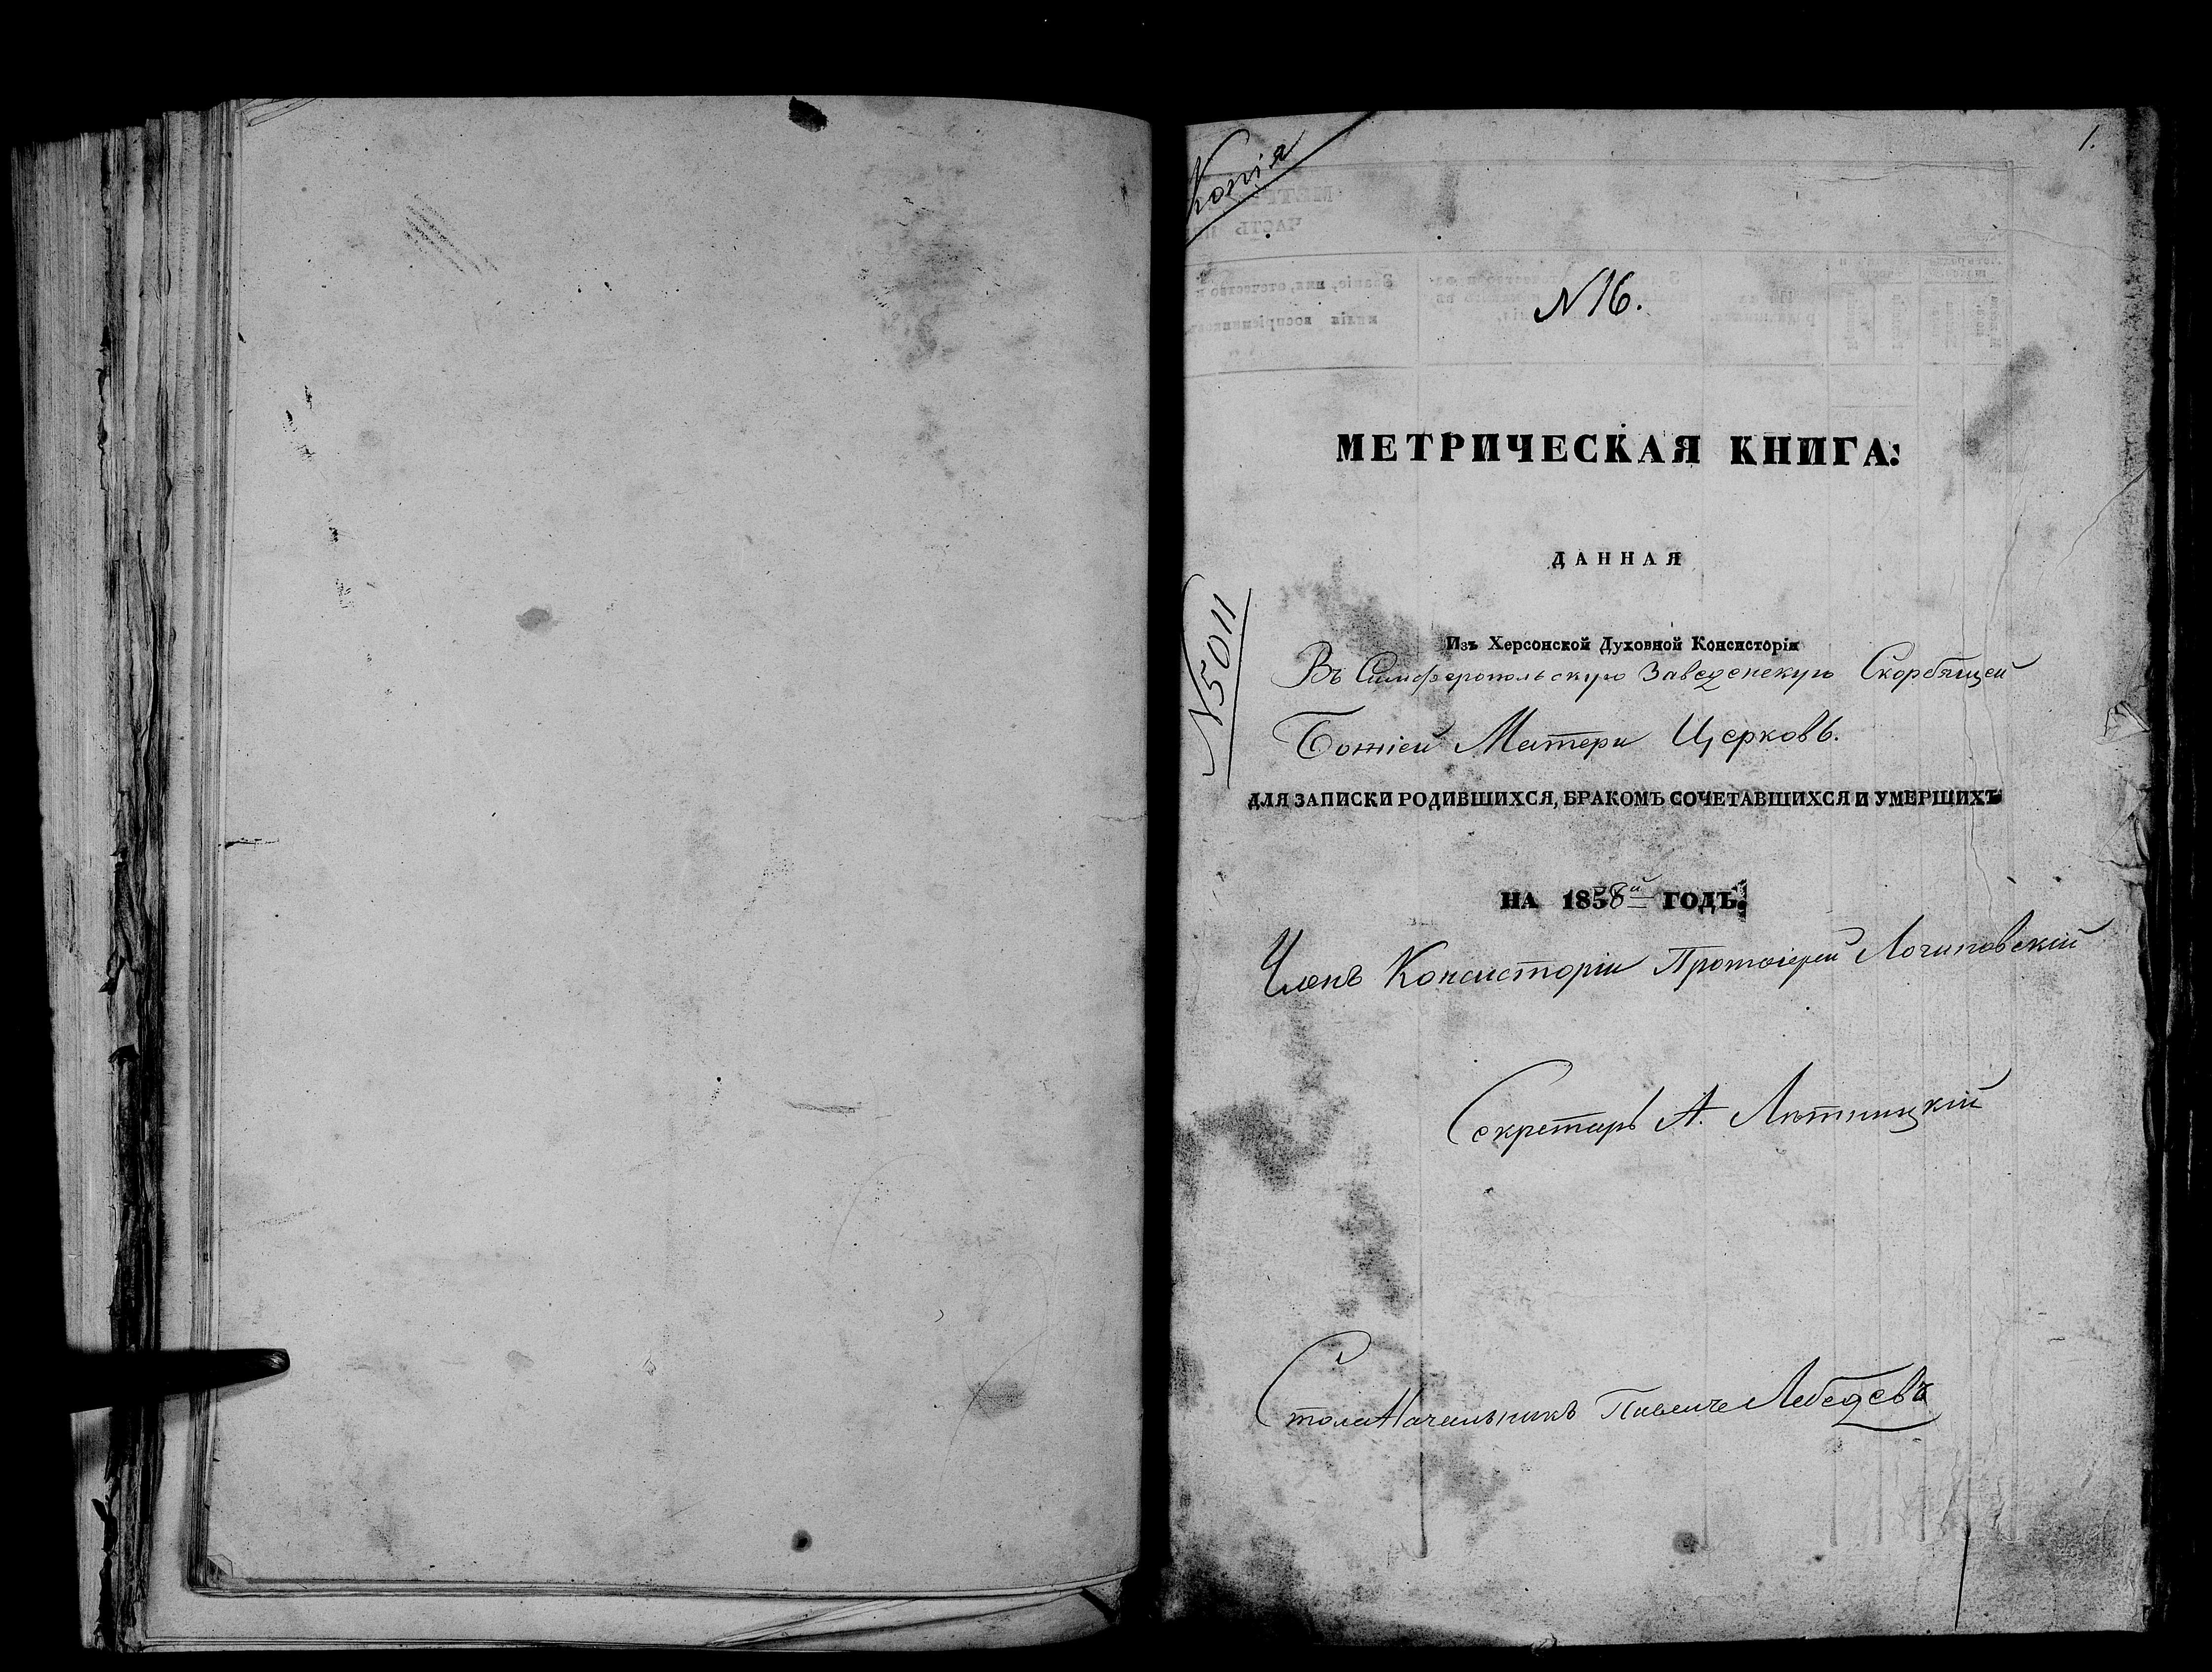 Копія
1.
N 16.
МЕТРИЧЕСКАЯ КНИГА:
ДАННАЯ
N 5011
Изъ Херсонской Духовной Консисторіи
Въ Симферопольскую Заведенскую Скорбящей
Божіей Матери Церковь.
ДЛЯ ЗАПИСКИ РОДИВШИХСЯ, БРАКОМЪ СОЧЕТАВШИХСЯ И УМЕРШИХЪ
НА 1858й ГОДЪ.
Членъ Консисторіи Протоіерей Логиновскій
Секретарь А. Лютницкій
СтолоНачальникъ Лебедевъ